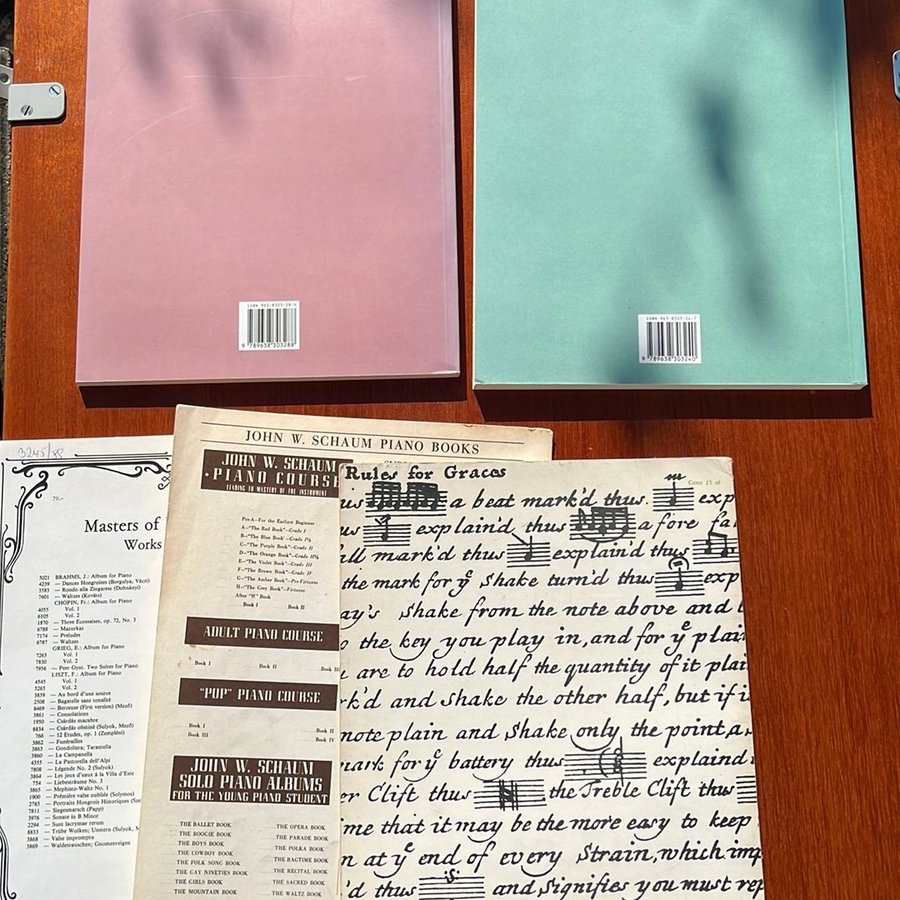 ISBN 963-8303-28-8
9 789638 303288
ISBN 963-8303-24-7
9 789638 303240
3245/88
79,-
Masters of
Works
5021 — BRAHMS, J.: Album for Piano
4239 — Danses Hongroises (Borgulya, Váczi)
3583 — Rondo alla Zingarese (Dohnányi)
7601 — Waltzes (Kováts)
CHOPIN, Fr.: Album for Piano
4055 Vol. 1
6105 Vol. 2
1870 — Three Ecossaises, op. 72, No. 3
6788 — Mazurkas
7174 — Preludes
6787 — Waltzes
GRIEG, E.: Album for Piano
7263 Vol. 1
7830 Vol. 2
7956 — Peer Gynt. Two Suites for Piano
LISZT, F.: Album for Piano
4545 Vol. 1
5265 Vol. 2
3859 — Au bord d'une source
2508 — Bagatelle sans tonalité
8469 — Berceuse (First version) (Mező)
3861 — Consolations
1950 — Csárdás macabre
8834 — Csárdás obstiné (Sulyok, Mező)
766 — 12 Etudes, op. 1 (Zempléni)
3862 — Funérailles
3863 — Gondoliera; Tarantella
3860 — La Campanella
4355 — La Pastorella dell'Alpi
7808 — Légende No. 2 (Sulyok)
3864 — Les jeux d'eaux à la Villa d'Este
754 — Liebesträume No. 3
3865 — Mephisto-Waltz No. 1
1900 — Première valse oubliée (Solymos)
2785 — Portraits Hongrois Historiques (Sze
7811 — Siegesmarsch (Papp)
3976 — Sonate in B Minor
2294 — Sunt lacrymae rerum
8833 — Trübe Wolken; Unstern (Sulyok, M
3868 — Valse impromptu
3869 — Waldesrauschen; Gnomenreigen
JOHN W. SCHAUM PIANO BOOKS
JOHN W. SCHAUM
PIANO COURSE
LEADING TO MASTERY OF THE INSTRUMENT
Pre-A—For the Earliest Beginner
A—"The Red Book"—Grade I
B—"The Blue Book"—Grade I½
C—"The Purple Book"—Grade II
D—"The Orange Book"—Grade II½
E—"The Violet Book"—Grade III
F—"The Brown Book"—Grade IV
G—"The Amber Book"—Pre-Virtuoso
H—"The Grey Book"—Virtuoso
After "H" Book
Book I Book II
ADULT PIANO COURSE
Book I Book II Book III
"PUP" PIANO COURSE
Book I Book II
Book III Book IV
JOHN W. SCHAUM
SOLO PIANO ALBUMS
FOR THE YOUNG PIANO STUDENT
THE BALLET BOOK THE OPERA BOOK
THE BOOGIE BOOK THE PARADE BOOK
THE BOYS BOOK THE POLKA BOOK
THE COWBOY BOOK THE RAGTIME BOOK
THE FOLK SONG BOOK THE RECITAL BOOK
THE GAY NINETIES BOOK THE SACRED BOOK
THE GIRLS BOOK THE WALTZ BOOK
THE MOUNTAIN BOOK
Rules for Graces
Cena 25 zł
is a beat mark'd thus. exp
us explain'd thus a fore fal
all mark'd thus explain'd thus
the mark for yᵉ Shake turn'd thus exp
ay's Shake from the note above and
o the key you play in, and for yᵉ plain
are to hold half the quantity of it plai
rk'd and Shake the other half, but if i
note plain and Shake only the point, a
mark for yᵉ battery thus explaind
er Clift thus the Treble Clift thus
me that it may be the more easy to keep
n at yᵉ end of every Strain, which imp
'd thus :S: and Signifies you must rep